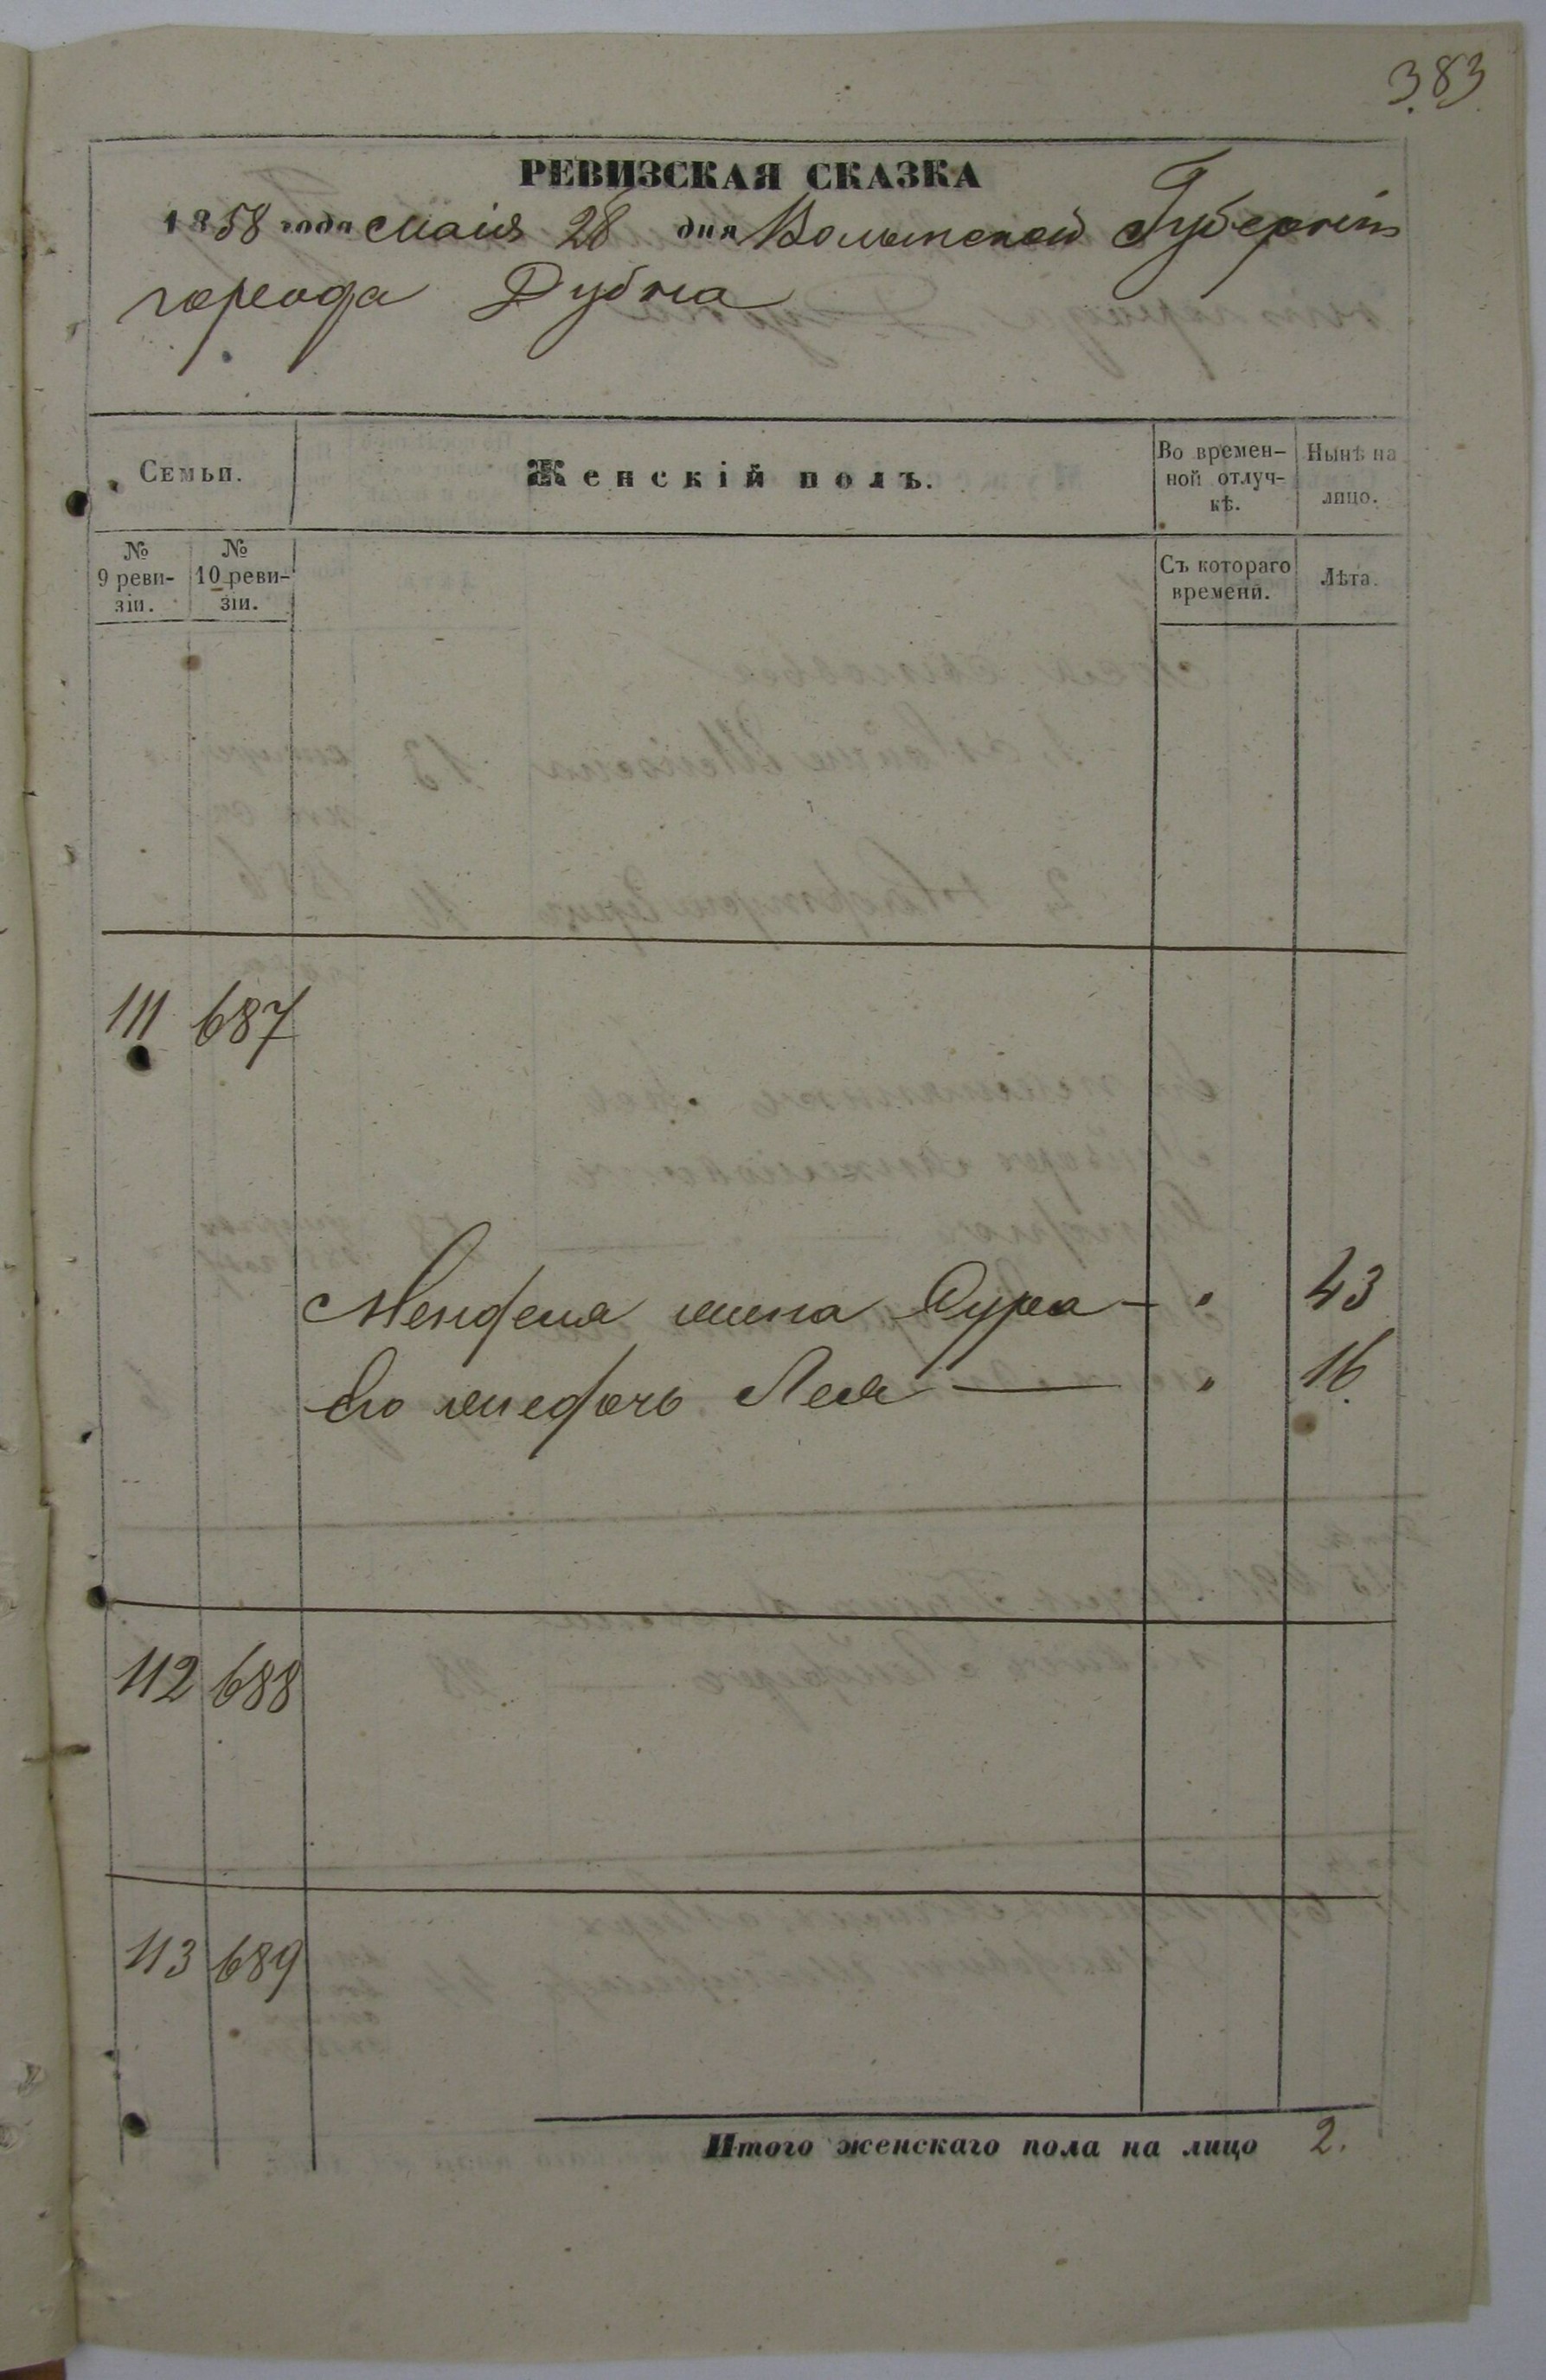 383
РЕВИЗСКАЯ СКАЗКА
1858 года маія 28 дня Волынской Губерніи
города Дубна
Семьи.
Женскій полъ.
Во времен-
ной отлуч-
кѣ.
Нынѣ на
лицо.
№
9 реви-
зіи.
№
10 реви-
зіи.
Съ котораго
времени.
Лѣта.
111 687
Менделя жена Сура — " 43
Его дочь Лея — " 16
112 688
113 689
Итого женскаго пола на лицо 2.